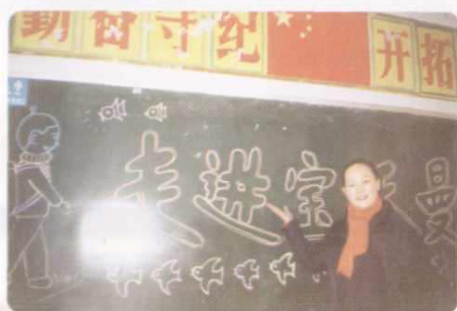 勤奋守纪 开拓
走进宝天曼